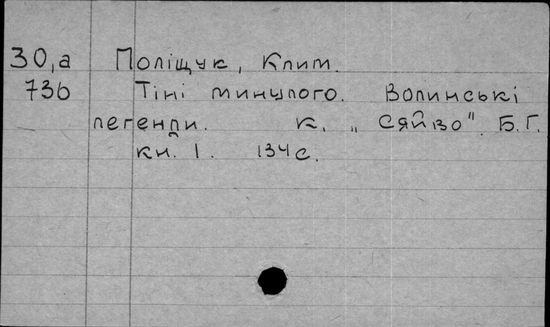 30,а Поліщук, Клим.
736 Тіні минулого. Волинські
легенди. К. „Сяйво". Б.Г.
кн. 1. 134 с.